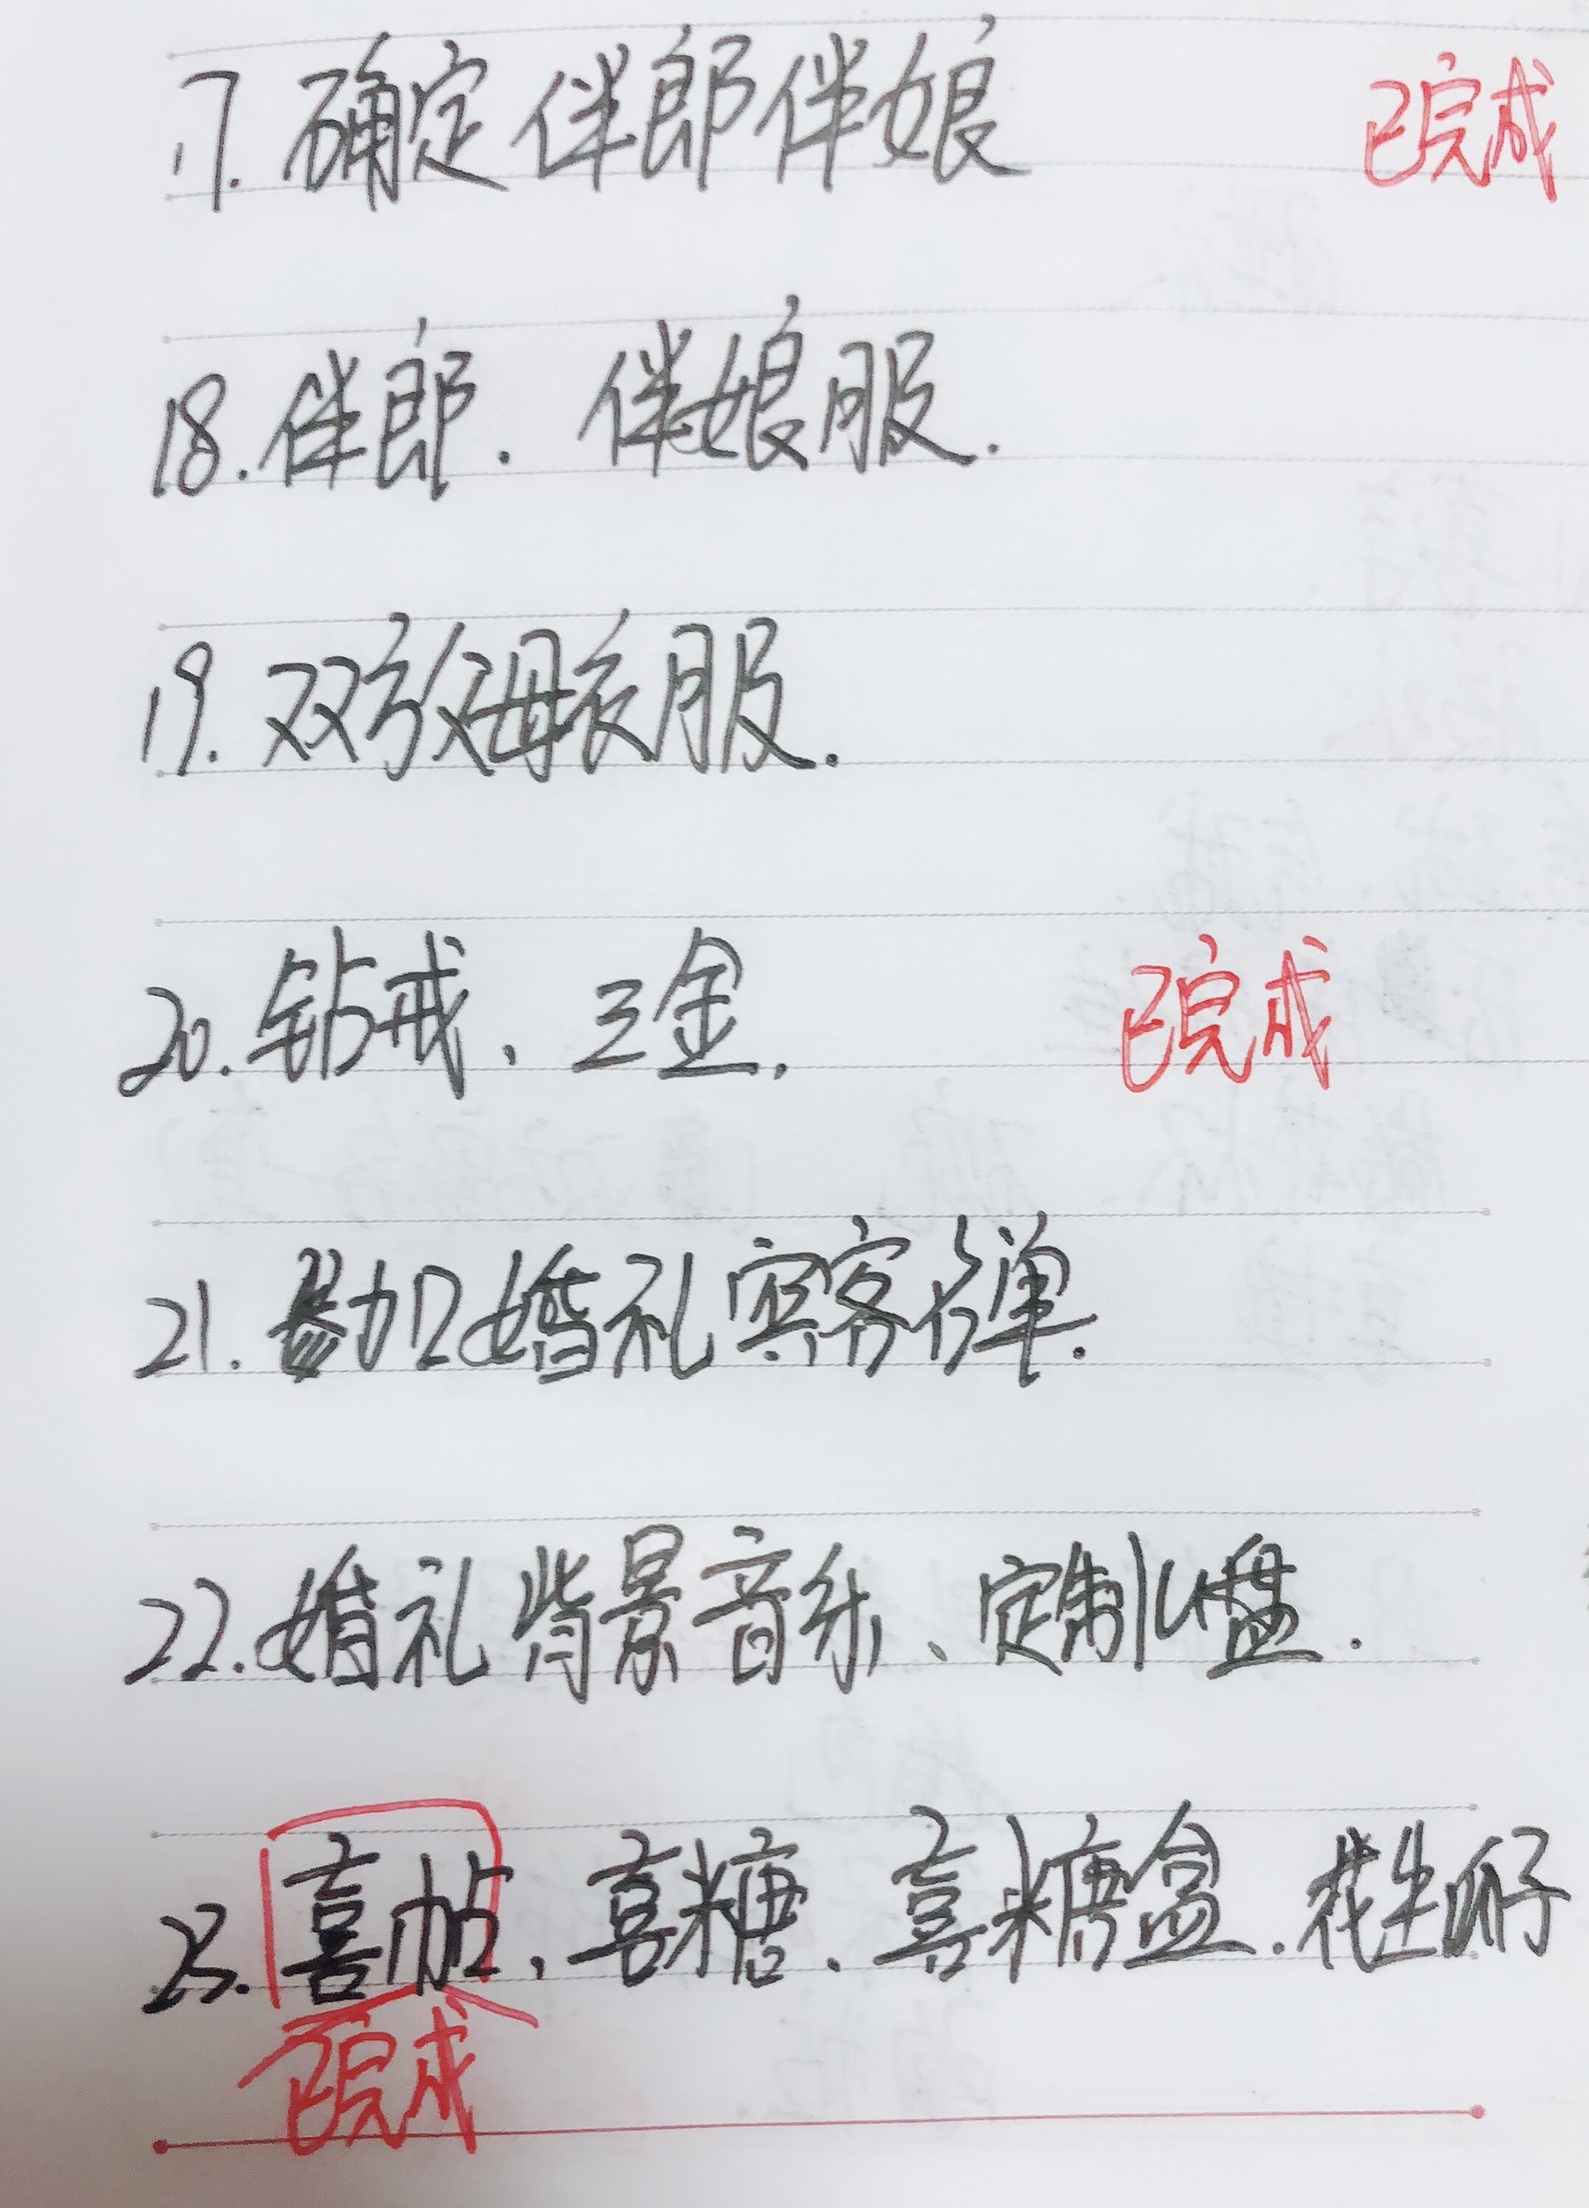 17. 确定伴郎伴娘 已完成
18. 伴郎. 伴娘服.
19. 双方父母衣服.
20. 钻戒、三金. 已完成
21. 参加婚礼宾客名单.
22. 婚礼背景音乐、定制U盘.
23. 喜帖、喜糖、喜糖盒.花生瓜子
已完成